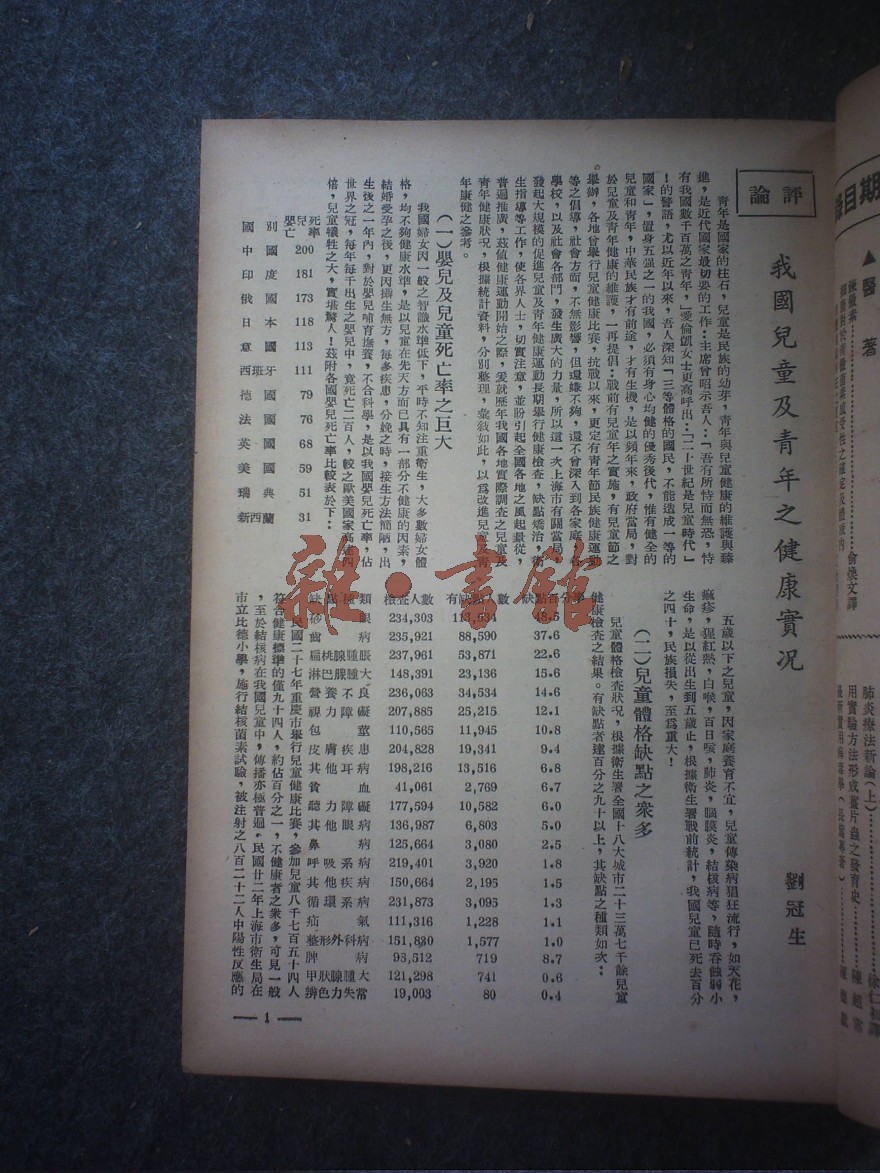 評論
我國兒童及青年之健康實况
劉冠生
青年是國家的柱石，兒童是民族的幼芽，青年與兒童健康的維護與臻
進，是近代國家最切要的工作：主席曾昭示吾人：「吾有所恃而無恐，恃
有我國數千百萬之青年，」愛倫凱女士更高呼出：「二十世紀是兒童時代」
！的警語，尤以近年以來，吾人深知「三等體格的國民，不能造成一等的
國家」，置身五强之一的我國，必須有身心均健的優秀後代，惟有健全的
兒童和青年，中華民族才有前途，才有生機，是以頻年來，政府當局，對
於兒童及青年健康的維護，一再提倡：戰前有兒童年之實施，有兒童節之
舉辦，各地曾舉行兒童健康比賽，抗戰以來，更定有青年節民族健康運動
等之倡導，社會方面，不無影響，但還嫌不夠，還不曾深入到各家庭，各
學校，以及社會各部門，發生廣大的力量，所以這一次上海市有關當局，
發起大規模的促進兒童及青年健康運動長期舉行健康檢查，缺點矯治，衛
生指導等工作，使各界人士，切實注意，並盼引起全國各地之風起景從，
普遍推廣，茲值健康運動開始之際，爰就歷年我國各地實際調查之兒童及
青年健康狀况，根據統計資料，分別整理，彙叙如此，以爲改進兒童及青
年康健之參考。
（一）嬰兒及兒童死亡率之巨大
我國婦女因一般之智識水準低下，平時不知注重衛生，大多數婦女體
格，均不夠健康水準，是以兒童在先天方面已具有一部分不健康的因素，
結婚受孕之後，更因攝生無方，每多疾患，分娩之時，接生方法簡陋，出
生後之一年內，對於嬰兒哺育撫養，不合科學，是以我國嬰兒死亡率，佔
世界之冠，每年每千出生之嬰兒中，竟死亡二百人，較之歐美國家高達四
倍，兒童犧牲之大，實堪驚人！茲附各國嬰兒死亡率比較表於下：
國別 嬰兒死亡率
中國 200
印度 181
俄國 173
日本 118
意國 113
西班牙 111
德國 79
法國 76
英國 68
美國 59
瑞典 51
新西蘭 31
五歲以下之兒童，因家庭養育不宜，兒童傳染病猖狂流行，如天花，
痲疹，猩紅熱，白喉，百日咳，肺炎，腦膜炎，結核病等，隨時吞蝕弱小
生命，是以從出生到五歲止，根據衛生署戰前統計，我國兒童已死去百分
之四十，民族損失，至爲重大！
（二）兒童體格缺點之衆多
兒童體格檢查狀况，根據衛生署全國十八大城市二十三萬七千餘兒童
健康檢查之結果。有缺點者達百分之九十以上，其缺點之種類如次：
缺點種類 檢查人數 有缺點人數 缺點百分率
砂眼 234,303 113,534 48.5
齒病 235,921 88,590 37.6
扁桃腺腫脹 237,961 53,871 22.6
淋巴腺腫大 148,391 23,136 15.6
營養不良 236,063 34,534 14.6
視力障礙 207,885 25,215 12.1
包莖 110,565 11,945 10.8
皮膚疾患 204,828 19,341 9.4
其他耳病 198,216 13,516 6.8
貧血 41,061 2,769 6.7
聽力障礙 177,594 10,582 6.0
其他眼病 136,987 6,803 5.0
鼻病 125,664 3,080 2.5
呼吸系病 219,401 3,920 1.8
其他疾病 150,664 2,195 1.5
循環系病 231,873 3,095 1.3
疝氣 111,316 1,228 1.1
整形外科病 151,830 1,577 1.0
脾病 93,512 719 8.7
甲狀腺腫大 121,298 741 0.6
辨色力失常 19,003 80 0.4
民國二十七年重慶市舉行兒童健康比賽，參加兒童八千七百五十四人
符合健康標準的僅九十四人，約佔百分之一，不健康者之衆多，可見一般
，至於結核病在我國兒童中，傳播亦極普遍，民國廿二年上海市衛生局在
市立比德小學，施行結核菌素試驗，被注射之八百二十二人中陽性反應的
— 1 —
期目錄
▲醫著
俞煥文譯
肺炎療法新論（上）
徐仁和譯
用實驗方法形成薑片蟲之發育史
陳超常
雜·書館